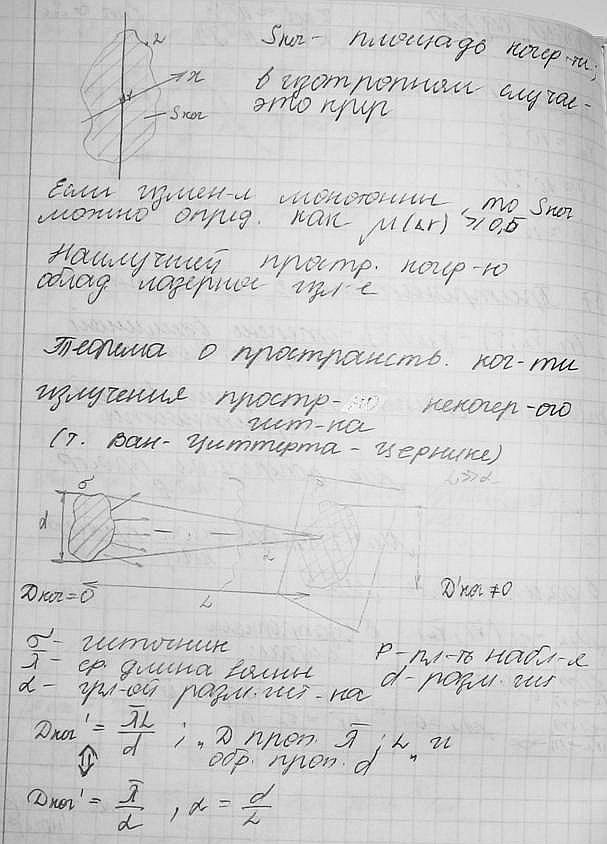 Σ
x
Sког
Sког - площадь когер-ти;
в изотропном случае -
это круг
Если измен-я монотонны, то Sког
можно опред. как μ(Δr) ≥ 0,5
Наилучшей простр. когер-ю
облад лазерное изл-е
Теорема о пространств. ког-ти
излучения простр-но некогер-ого
ист-ка
(т. Ван-Циттерта-Цернике)
σ
L≫d
d
α
L
Dког=0
D'ког≠0
σ - источник
λ̄ - ср. длина волны
α - угл-ой разм. ист-ка
P - пл-ть набл-я
d - разм. ист
Dког' = λ̄L/d ; „D проп. λ̄ ; L и
обр. проп. d"
⇕
Dког' = λ̄/α , α = d/L